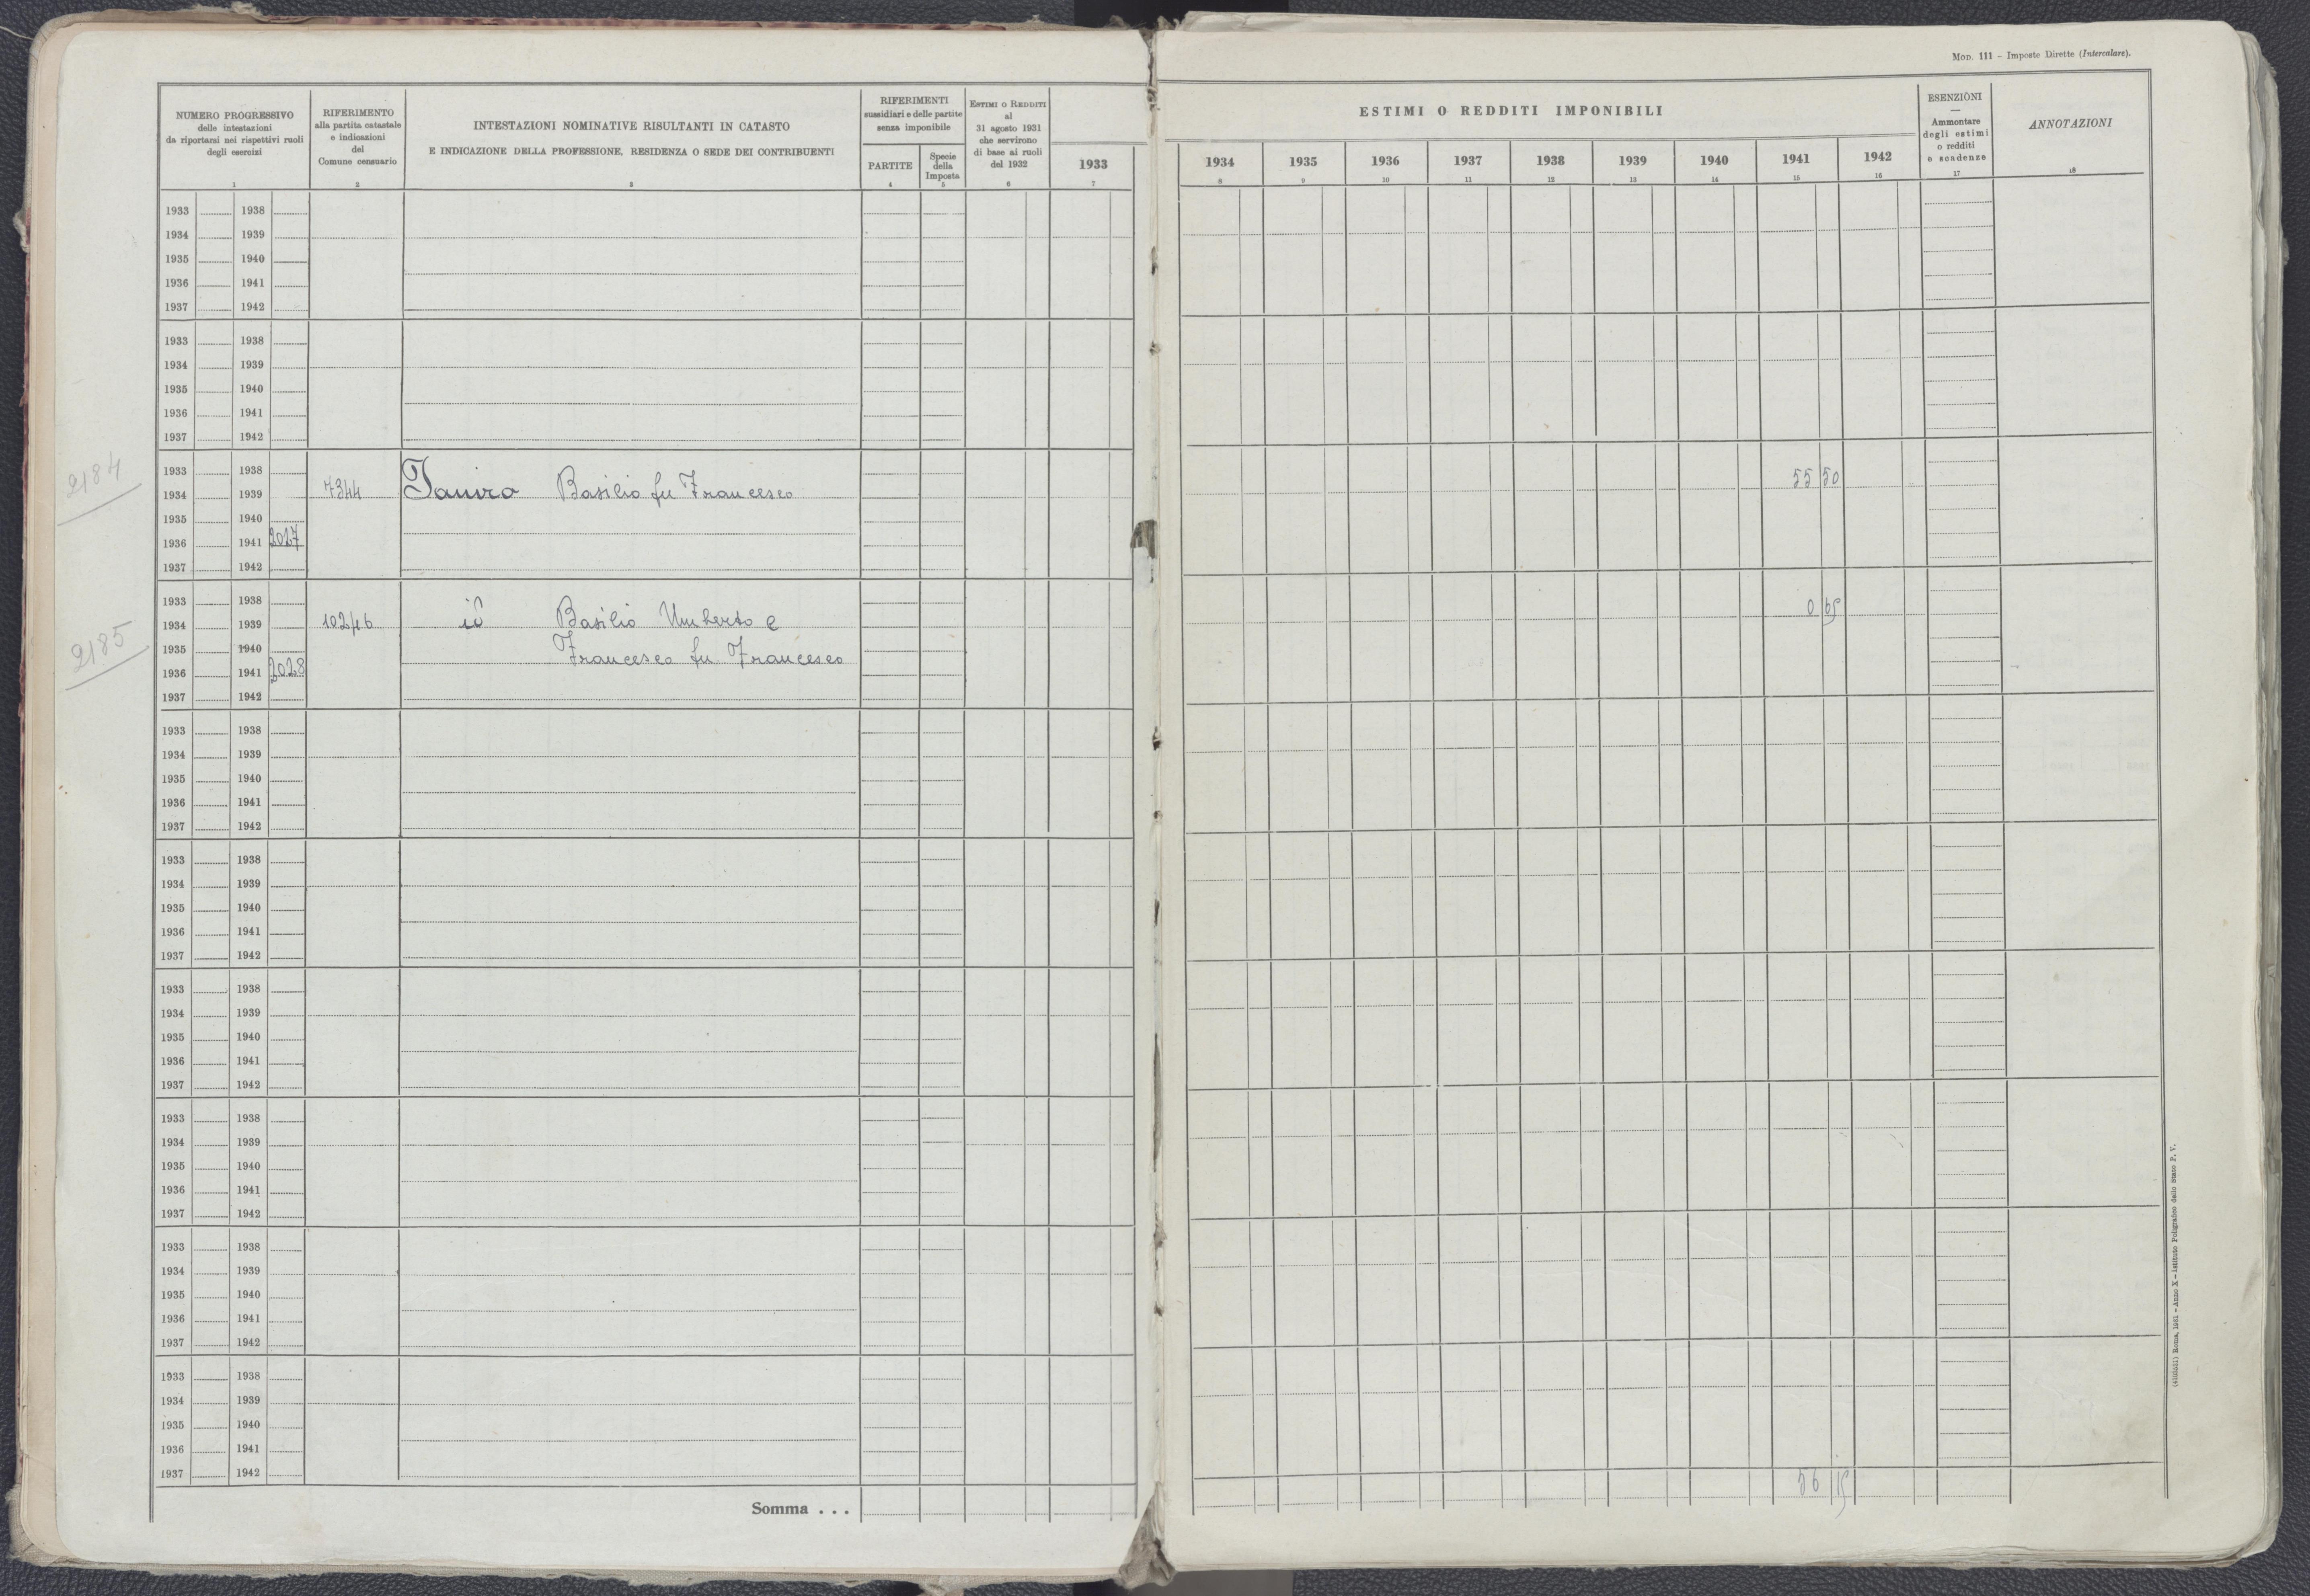 Mod. 111 - Imposte Dirette (Intercalare).
NUMERO PROGRESSIVO
delle intestazioni
da riportarsi nei rispettivi ruoli
degli esercizi
1
RIFERIMENTO
alla partita catastale
e indicazioni
del
Comune censuario
2
INTESTAZIONI NOMINATIVE RISULTANTI IN CATASTO
E INDICAZIONE DELLA PROFESSIONE, RESIDENZA O SEDE DEI CONTRIBUENTI
3
RIFERIMENTI
sussidiari e delle partite
senza imponibile
PARTITE
4
Specie
della
Imposta
5
ESTIMI O REDDITI
al
31 agosto 1931
che servirono
di base ai ruoli
del 1932
6
1933
7
ESTIMI O REDDITI IMPONIBILI
1934 1935 1936 1937 1938 1939 1940 1941 1942
8 9 10 11 12 13 14 15 16
ESENZIONI
—
Ammontare
degli estimi
o redditi
e scadenze
17
ANNOTAZIONI
18
1933 1938
1934 1939
1935 1940
1936 1941
1937 1942
1933 1938
1934 1939
1935 1940
1936 1941
1937 1942
2184
1933 1938
1934 1939 7344 Basilio fu Francesco 55 50
1935 1940
1936 1941 2027
1937 1942
2185
1933 1938
1934 1939 10246 id Basilio Umberto e 0 65
1935 1940
Francesco fu Francesco
1936 1941 2028
1937 1942
1933 1938
1934 1939
1935 1940
1936 1941
1937 1942
1933 1938
1934 1939
1935 1940
1936 1941
1937 1942
1933 1938
1934 1939
1935 1940
1936 1941
1937 1942
1933 1938
1934 1939
1935 1940
1936 1941
1937 1942
1933 1938
1934 1939
1935 1940
1936 1941
1937 1942
1933 1938
1934 1939
1935 1940
1936 1941
1937 1942
Somma . . . 56 15
Roma, 1931 - Anno X - Istituto Poligrafico dello Stato P. V.